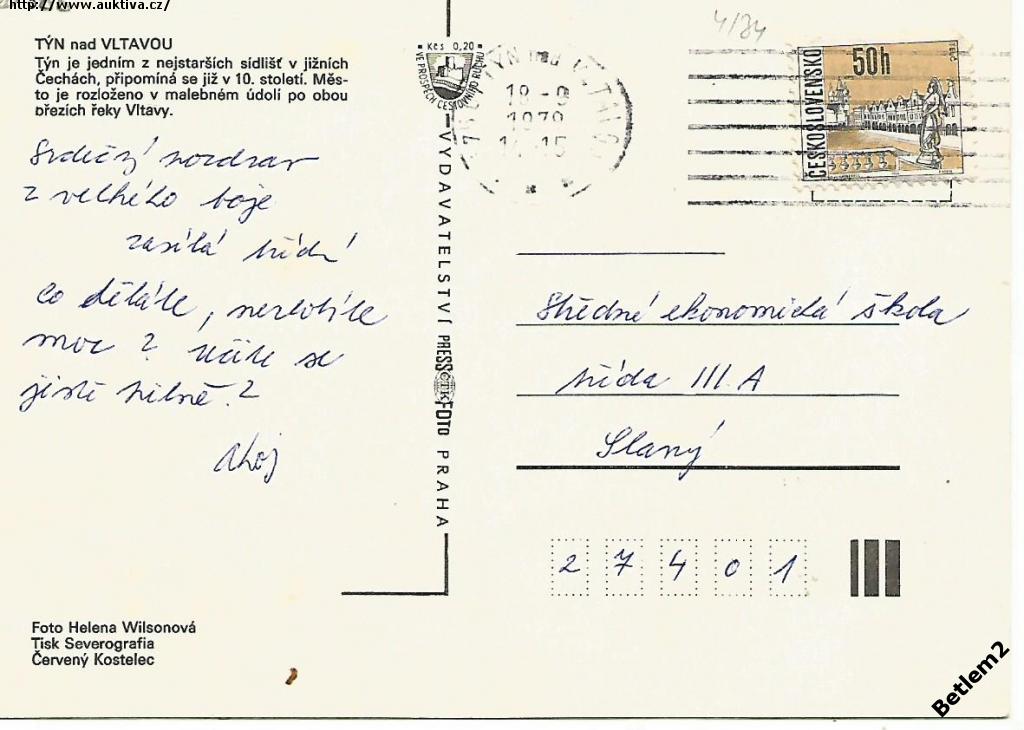 http://www.auktiva.cz/
TÝN nad VLTAVOU
Týn je jedním z nejstarších sídlišť v jižních
Čechách, připomíná se již v 10. století. Měs-
to je rozloženo v malebném údolí po obou
březích řeky Vltavy.
Srdečný pozdrav
z velkého boje
zasílá
co děláte, nezlobíte
moc? Učíte se
jistě pilně?
Ahoj
Foto Helena Wilsonová
Tisk Severografia
Červený Kostelec
Kčs 0,20
VE PROSPĚCH CESTOVNÍHO RUCHU
VYDAVATELSTVÍ PRESSFOTO PRAHA
ČTK
4/84
TÝN nad VLTAVOU
18-9
1979
15
ČESKOSLOVENSKO
50h
Střední ekonomická škola
třída III. A
Slaný
2 7 4 0 1
Betlem2